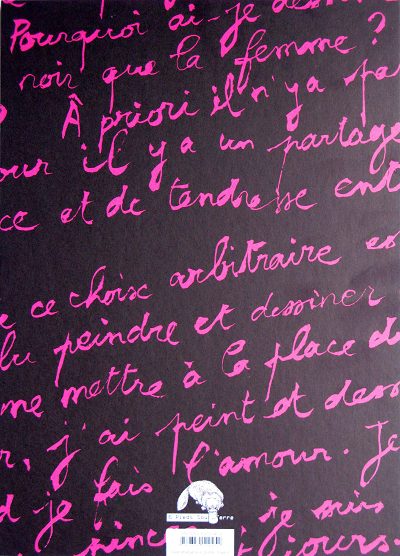 Pourquoi ai-je dessi
noir que la femme ?
? À priori il n'y a pa
our il y a un partage
ce et de tendresse ent
e ce choix arbitraire es
lu peindre et dessiner
me mettre à la place d
r, j'ai peint et dess
d je fais l'amour. Je
je suis
jours.
6 Pieds Sous Terre